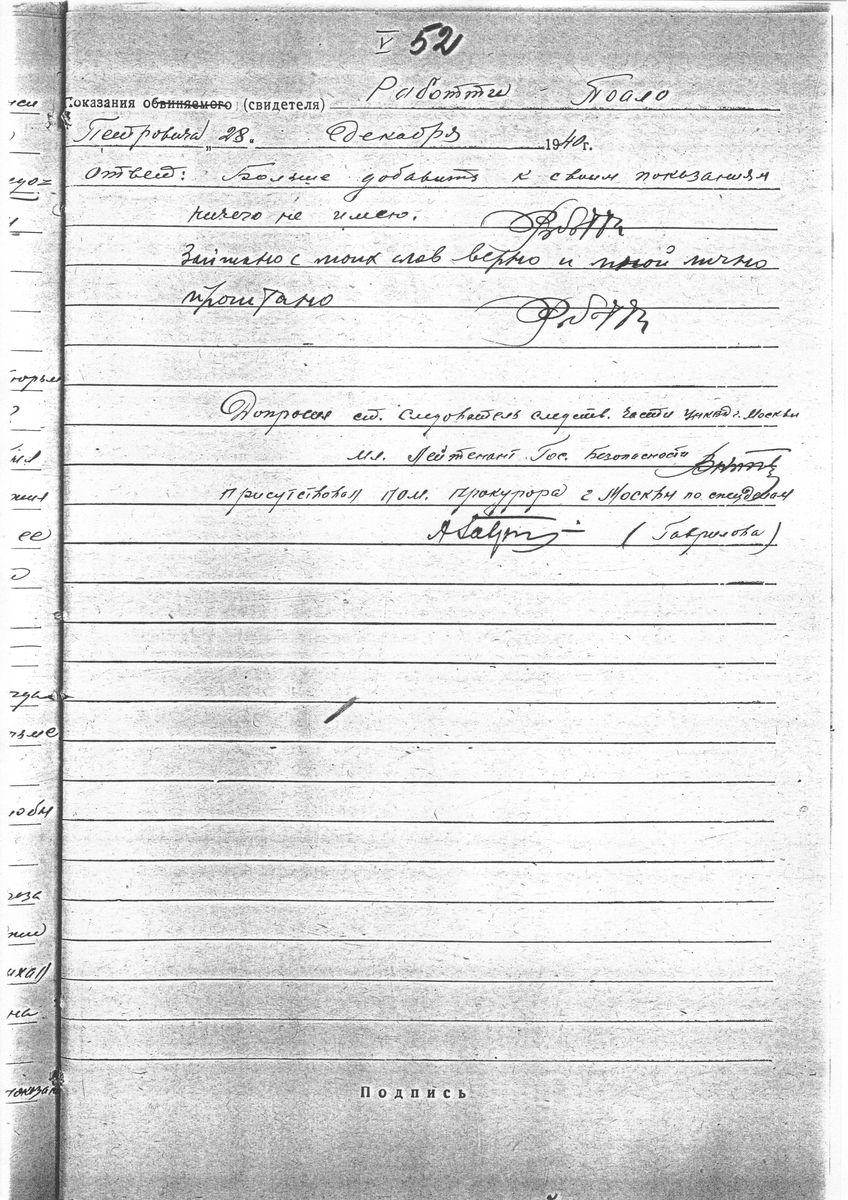 V 52
Показания обвиняемого (свидетеля) Работти Поало
Петровича „ 28. декабря 1940 г.
Ответ: Больше добавить к своим показаниям
ничего не имею.
Записано с моих слов верно и мной лично
прочитано
Допросил ст. следователь следств. части УНКВД г. Москвы
мл. Лейтенант Гос. Безопасности
Присутствовал пом. прокурора г Москвы по спецделам
(Гаврилова)
Подпись